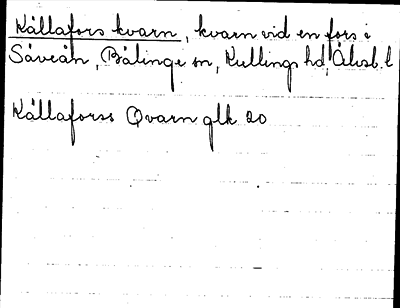 Kållafors kvarn, kvarn vid en fors i
Säveån, Bälinge sn, Kullings hd, Älvsb. l
Kållaforss Qvarn glk 20